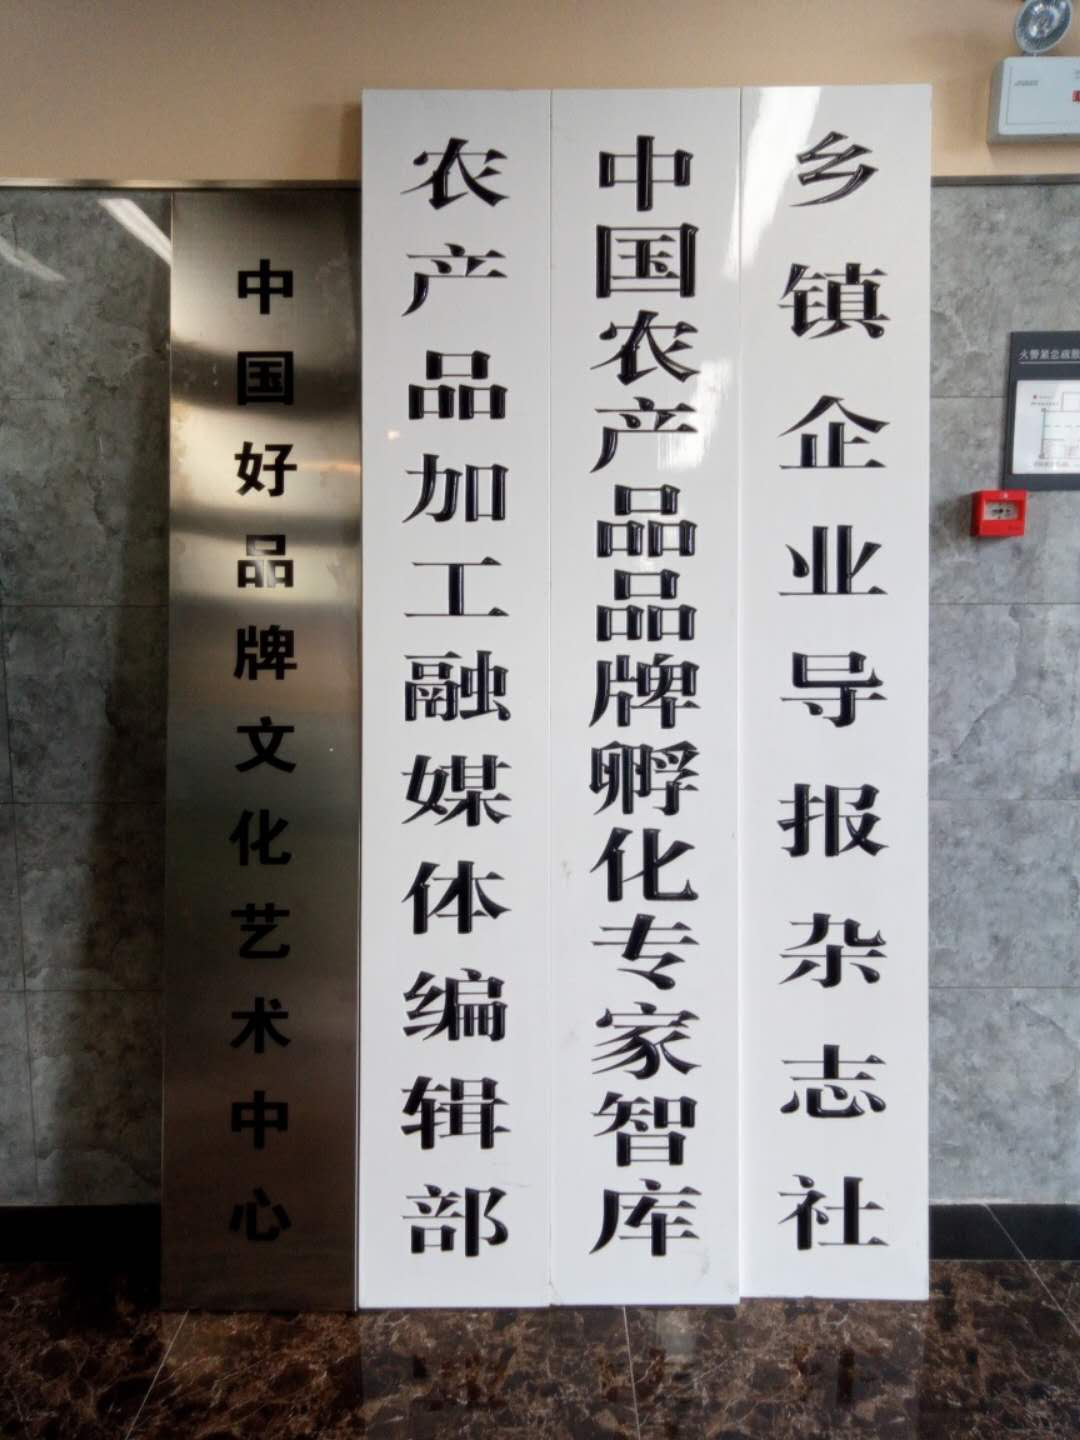 中国好品牌文化艺术中心
农产品加工融媒体编辑部
中国农产品品牌孵化专家智库
乡镇企业导报杂志社